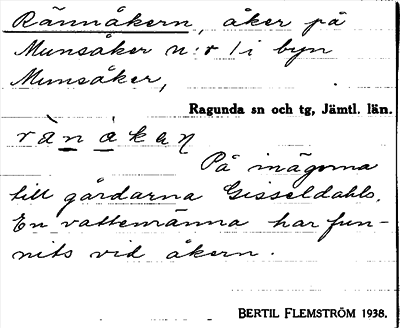 Rännåkern, åker på
Munsåker n:r 1 i byn
Munsåker,
Ragunda sn och tg, Jämtl. län.
rä̀n åkaɳ
På inägorna
till gårdarna Gisseldahls.
En vattenränna har fun-
nits vid åkern.
BERTIL FLEMSTRÖM 1938.